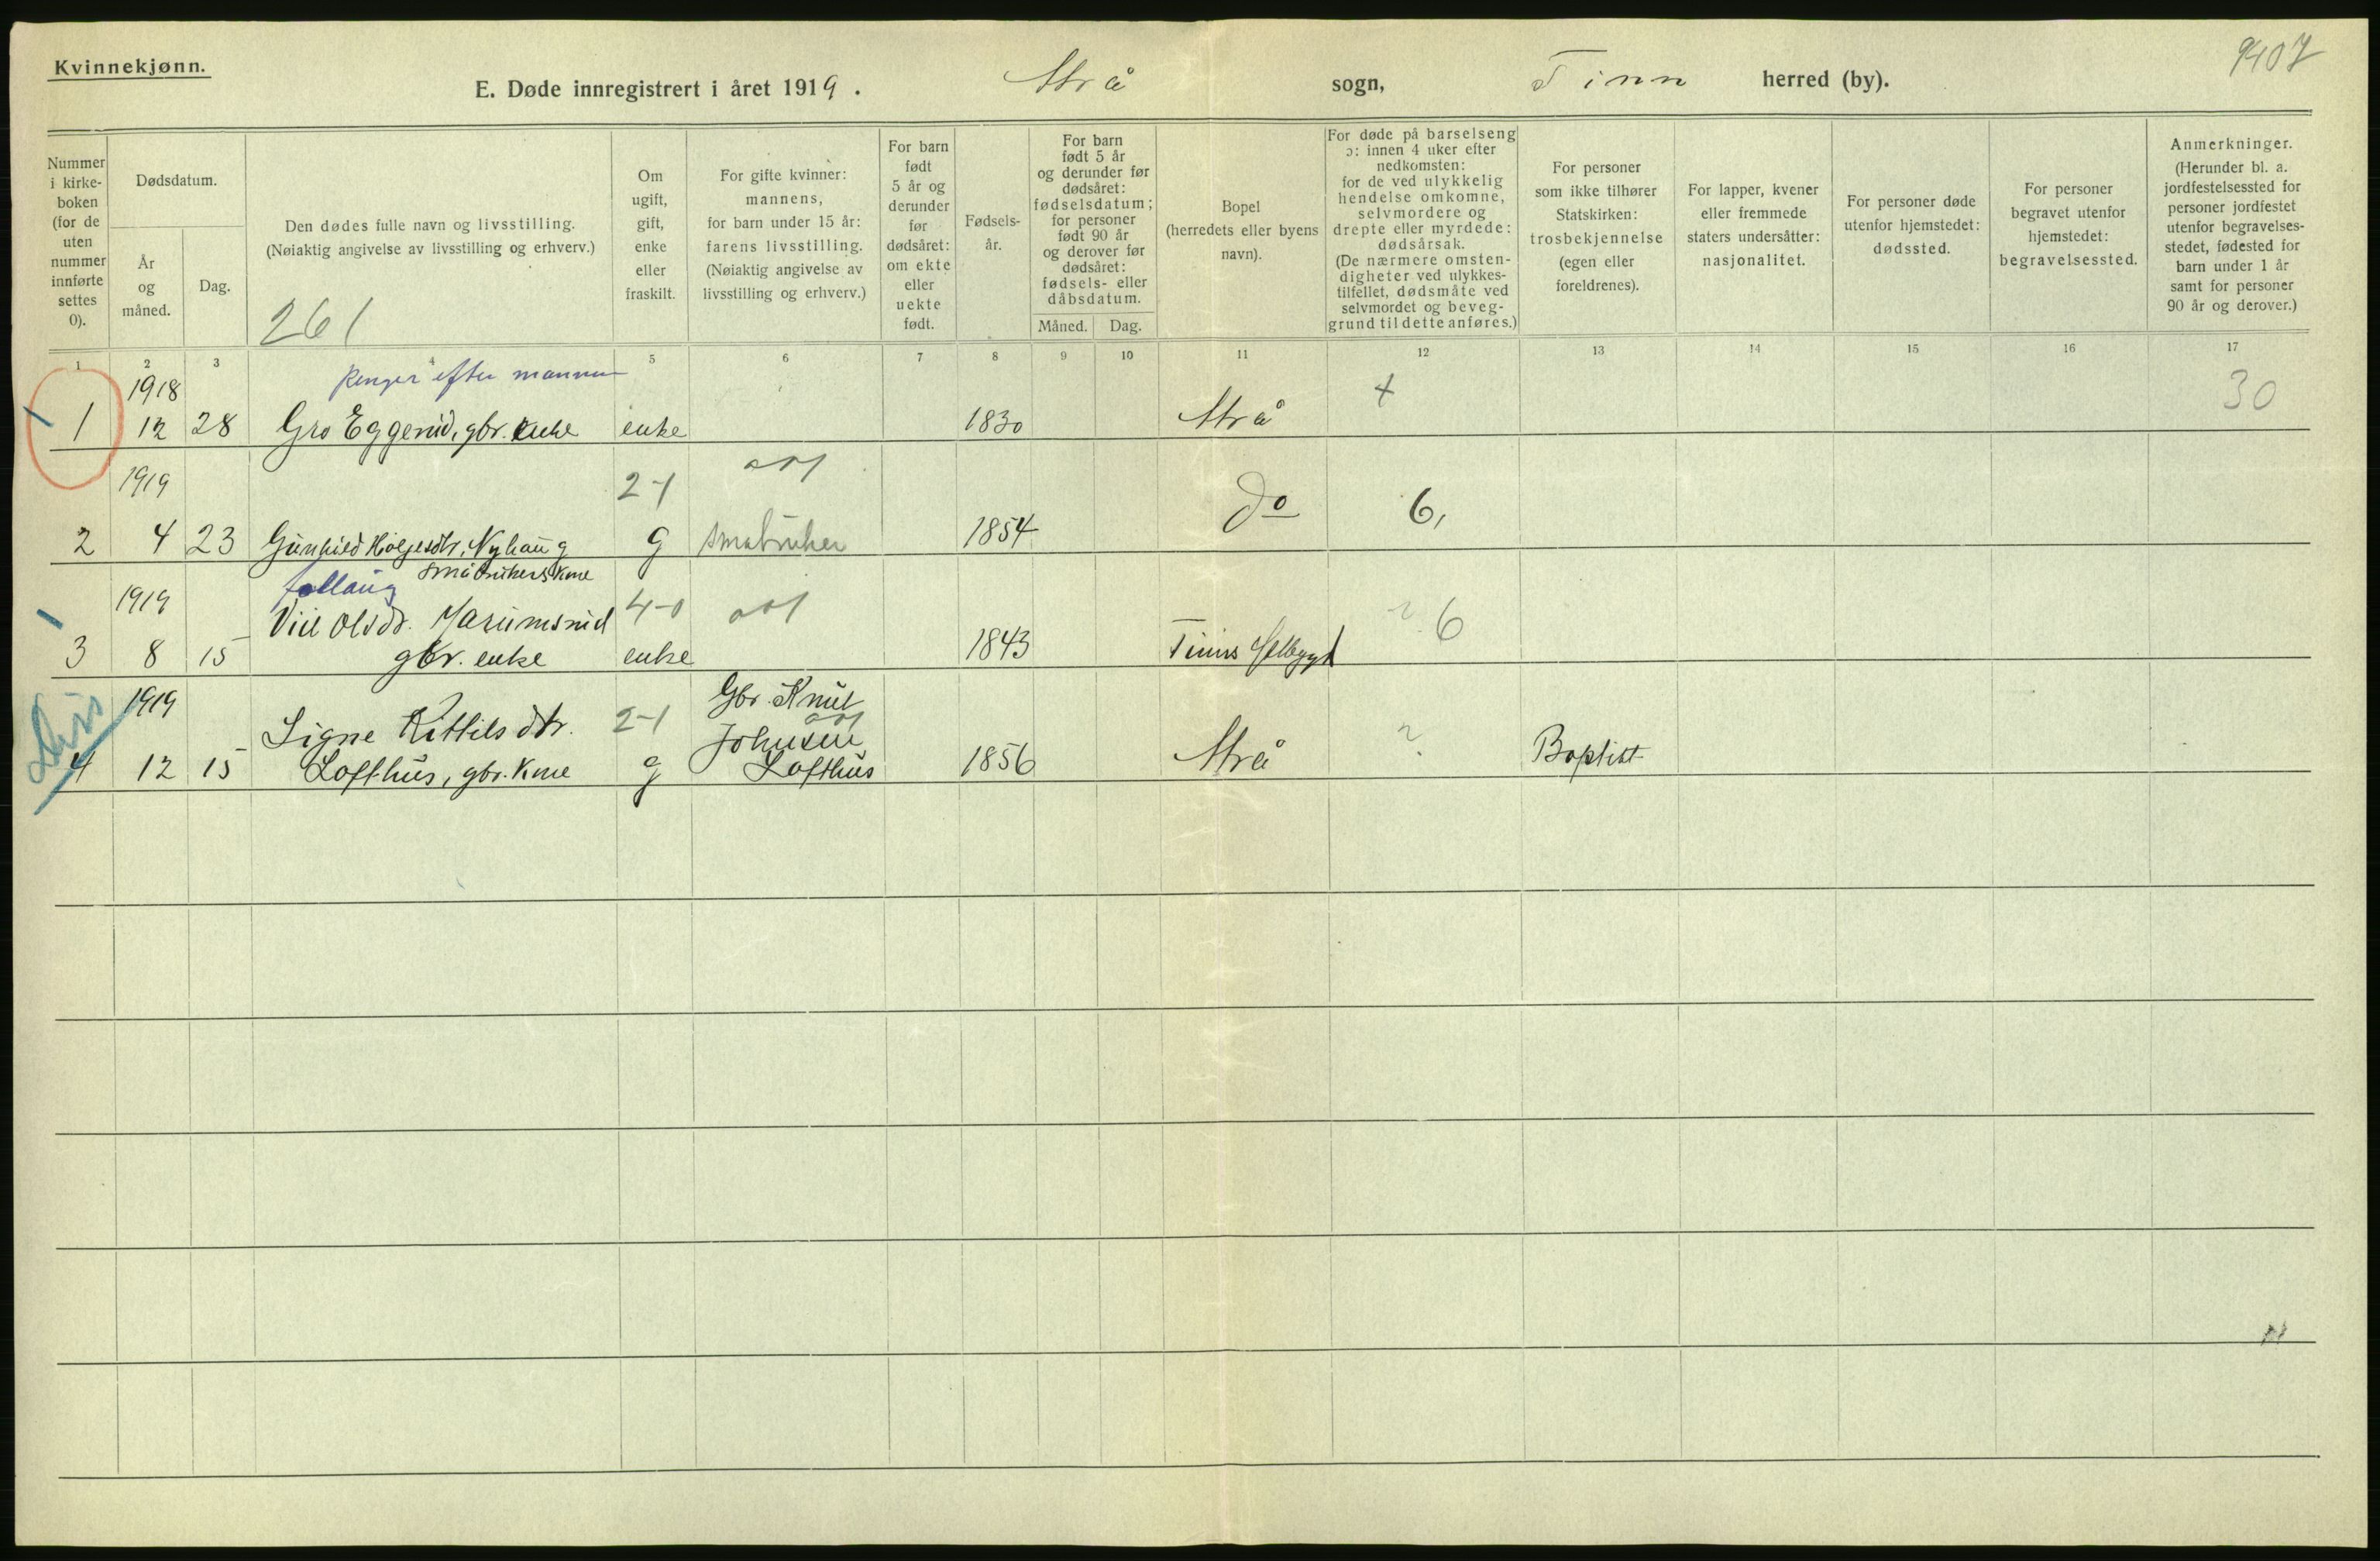 Kvinnekjønn.
9407
E. Døde innregistrert i året 1919. Atrå sogn, Tinn herred (by).
Nummer i kirke- boken (for de uten nummer innførte settes 0).
Dødsdatum.
År og måned.
Dag.
Den dødes fulle navn og livsstilling.
(Nøiaktig angivelse av livsstilling og erhverv.)
261
Om ugift, gift, enke eller fraskilt.
For gifte kvinner: mannens, for barn under 15 år: farens livsstilling. (Nøiaktig angivelse av livsstilling og erhverv.)
For barn født 5 år og derunder før dødsåret: om ekte eller uekte født.
Fødsels- år.
For barn født 5 år og derunder før dødsåret: fødselsdatum; for personer født 90 år og derover før dødsåret: fødsels- eller dåbsdatum.
Måned.
Dag.
Bopel (herredets eller byens navn).
For døde på barselseng ɔ: innen 4 uker efter nedkomsten: for de ved ulykkelig hendelse omkomne, selvmordere og drepte eller myrdede: dødsårsak. (De nærmere omsten- digheter ved ulykkes- tilfellet, dødsmåte ved selvmordet og beveg- grund til dette anføres.)
For personer som ikke tilhører Statskirken: trosbekjennelse (egen eller foreldrenes).
For lapper, kvener eller fremmede staters undersåtter: nasjonalitet.
For personer døde utenfor hjemstedet: dødssted.
For personer begravet utenfor hjemstedet: begravelsessted.
Anmerkninger. (Herunder bl. a. jordfestelsessted for personer jordfestet utenfor begravelses- stedet, fødested for barn under 1 år samt for personer 90 år og derover.)
1 2 3 4 5 6 7 8 9 10 11 12 13 14 15 16 17
1918 efter mannen + 30
1 12 28 Gro Eggerud, gbr. enke enke 1830 Atrå
1919 2-1 do 6,
2 4 23 Gunhild Holjesdtr. Nyhaug g småbruker 1854
småbrukers kne
1919 4-0 ? 6
Olsdr.
3 8 15 gbr. enke enke 1843 Tinns
1919 Gbr. Knut
Signe Kittilsdtr. 2-1 Johnsen ?
4 12 15 Lofthus, gbr. kne g Lofthus 1856 Atrå Baptist